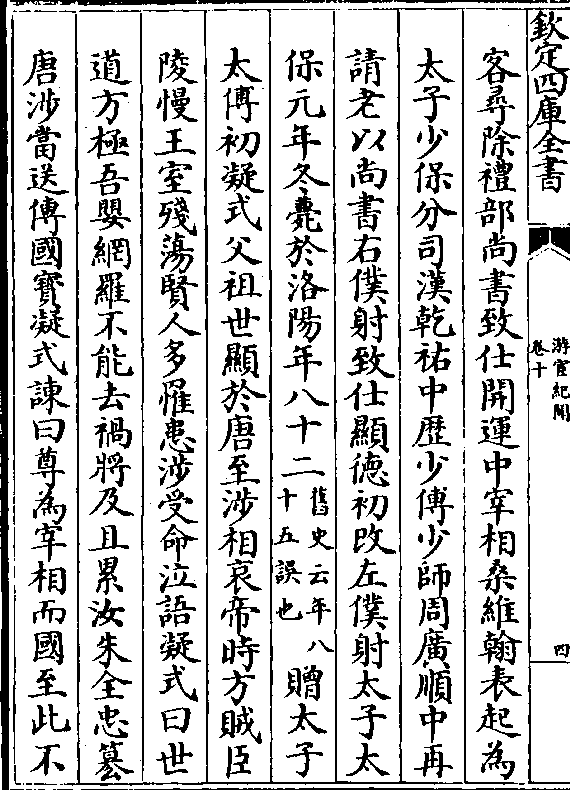 欽定四庫全書
游宦紀聞
卷十
四
客尋除禮部尚書致仕開運中宰相桑維翰表起為
太子少保分司漢乾祐中歷少傅少師周廣順中再
請老以尚書右僕射致仕顯德初改左僕射太子太
保元年冬薨於洛陽年八十二舊史云年八十五誤也贈太子
太傅初凝式父祖世顯於唐至涉相哀帝時方賊臣
陵慢王室殘蕩賢人多罹患涉受命泣語凝式曰世
道方極吾嬰網羅不能去禍將及且累汝朱全忠簒
唐涉當送傳國寳凝式諫曰尊為宰相而國至此不